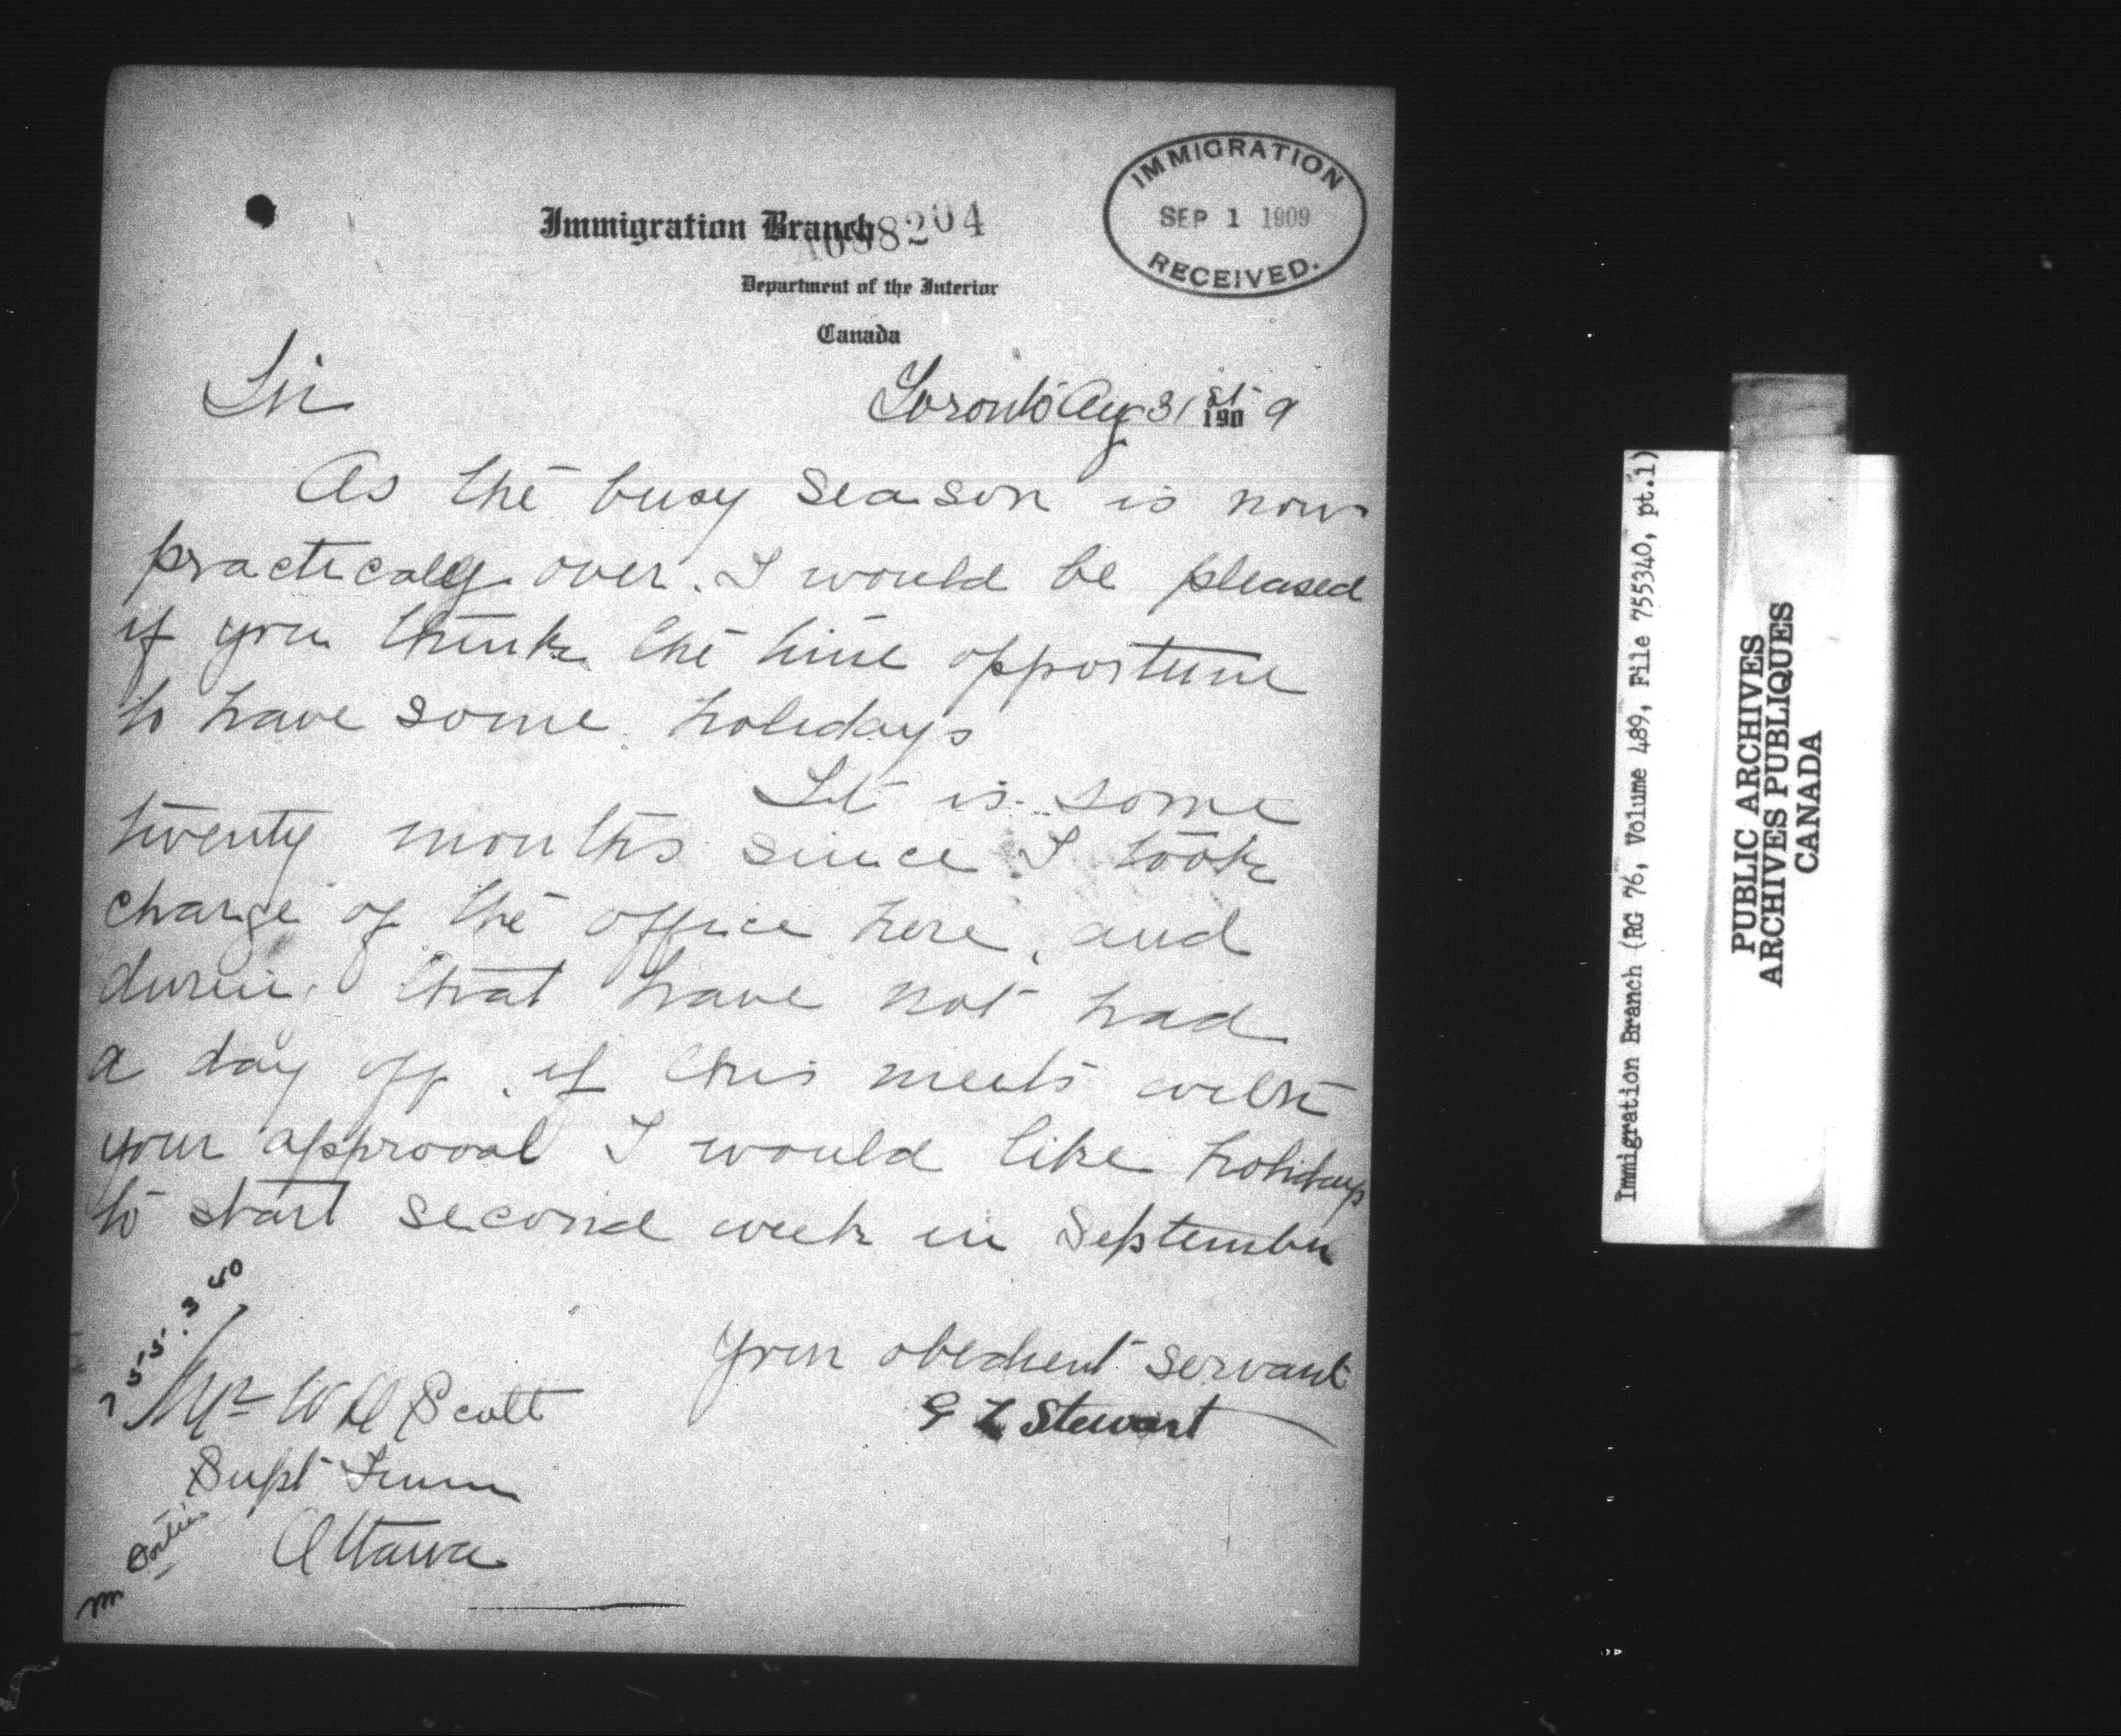 IMMIGRATION
SEP 1 1909
RECEIVED.
Immigration Branch
8204
Department of the Interior
Canada
Sir
Toronto Aug 31st 1909
As the busy season is now
practically over. I would be pleased
if you think the time opportune
to have some holidays
It is some
twenty months since I took
charge of the office here, and
during that have not had
a day off. if this meets with
your approval I would like holidays
to start second week in September
Your obedient servant
G L Stewart
755340
Mr W D Scott
Supt Imm
Ottawa
Immigration Branch (RG 76, Volume 489, File 755340, pt.1)
PUBLIC ARCHIVES
ARCHIVES PUBLIQUES
CANADA